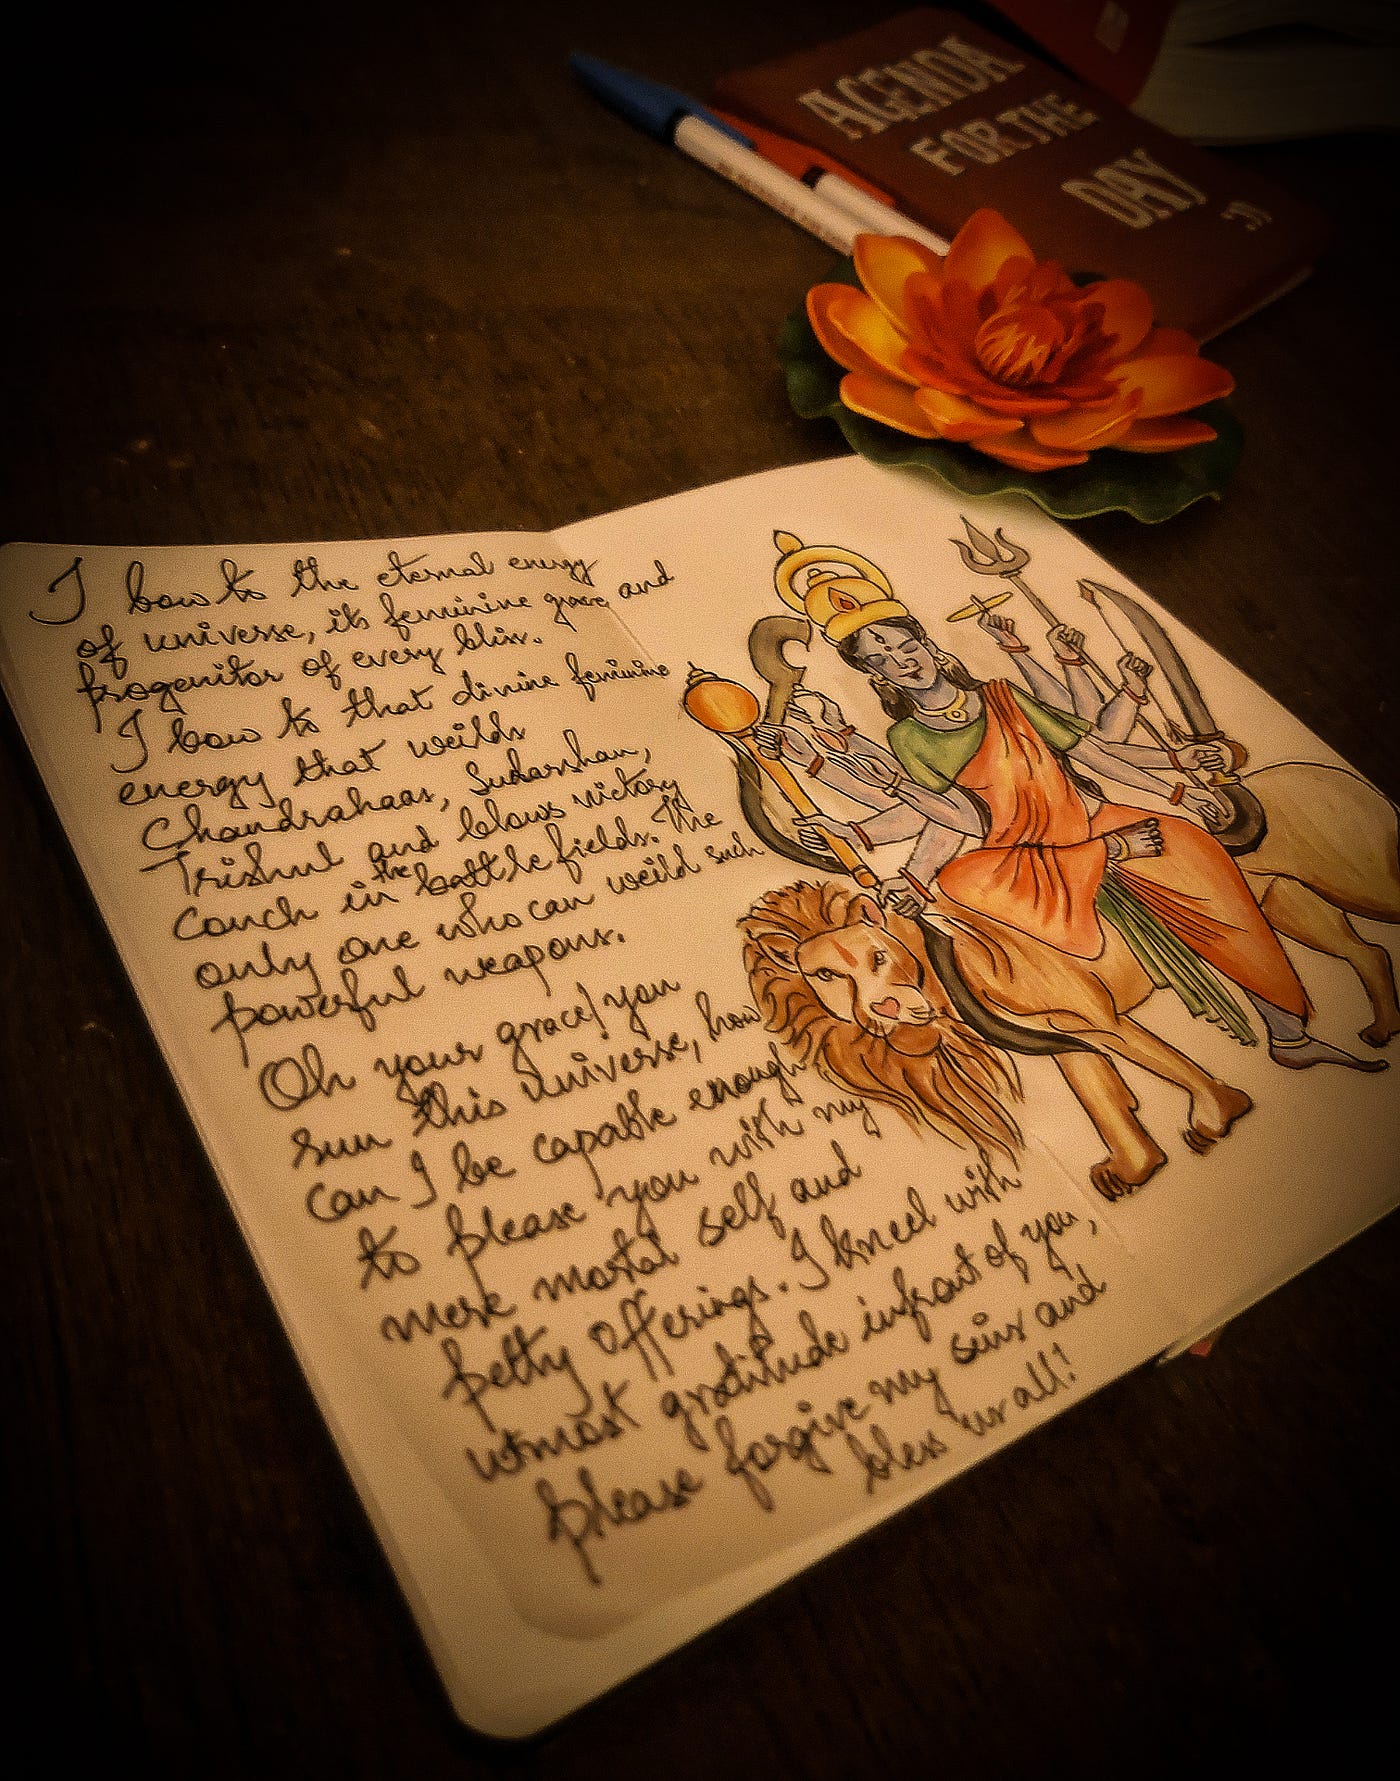 AGENDA
FOR THE
DAY"
I bow to the eternal energy
of universe, its feminine grace and
progenitor of every bliss.
I bow to that divine feminine
energy that weilds
Chandrahaas, Sudarshan,
Trishul and blows victory
Conch in the battle fields. The
only one who can weild such
powerful weapons.
Oh your grace! you
run this universe, how
can I be capable enough
to please you with my
mere mortal self and
petty offerings. I kneel with
utmost gratitude infront of you,
please forgive my sins and
bless us all!